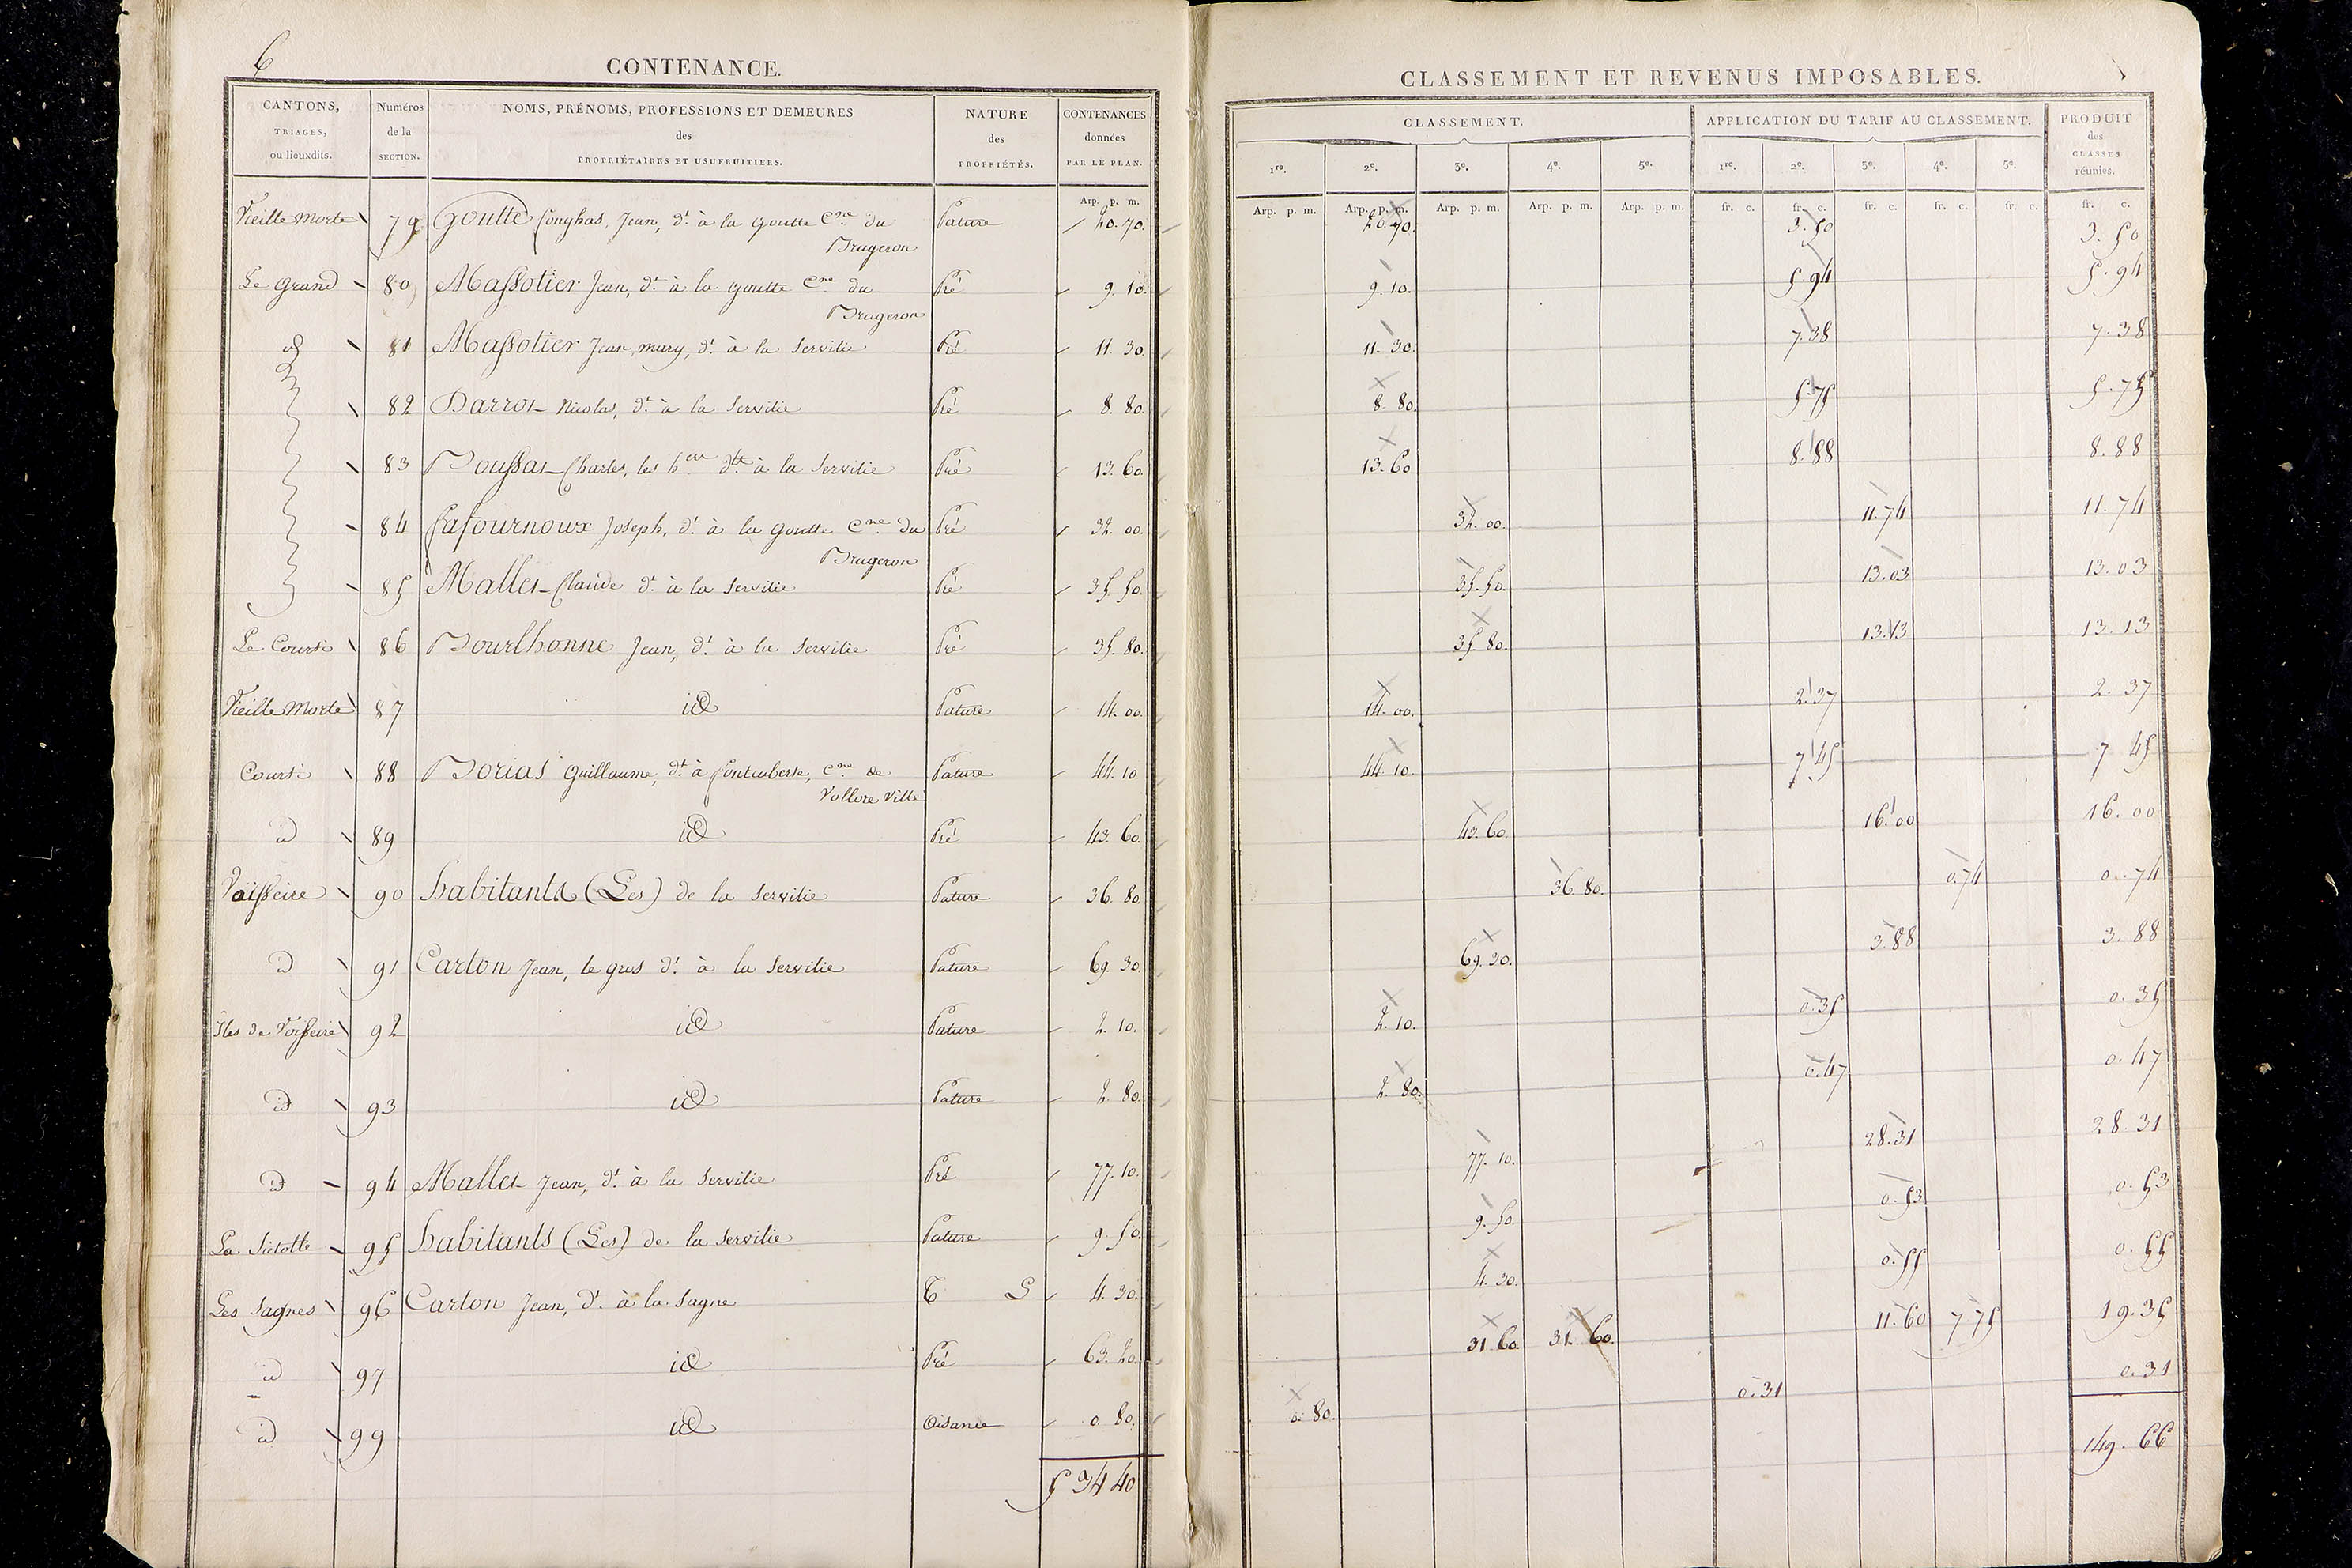 6
CONTENANCE.
CANTONS, TRIAGES, ou lieuxdits. Numéros de la SECTION. NOMS, PRÉNOMS, PROFESSIONS ET DEMEURES des PROPRIÉTAIRES ET USUFRUITIERS. NATURE des PROPRIÉTÉS. CONTENANCES données PAR LE PLAN.
Arp. p. m.
Vieille Morte 79 Goutte Jean, dt. à la Goutte Cne. du Pature 20. 70.
Brugeron
Le Grand 80 Massotier Jean, dt. à la Goutte Cne. du Pré 9. 10.
Brugeron
id 81 Massotier Jean mary, dt. à la Servilie Pré 11. 30.
82 Darrot Nicolas, dt. à la Servilie Pré 8. 80.
83 Boussat Charles, les her. dt. à la Servilie Pré 13. 60.
84 Lafournoux Joseph, dt. à la Goutte Cne. du Pré 32. 00.
Brugeron
85 Mallet Claude dt. à la Servilie Pré 35. 50.
Le Coursi 86 Bourlhonne Jean, dt. à la Servilie Pré 35. 80.
Vieille Morte 87 id Pature 14. 00.
Coursi 88 Dorias Guillaume, dt. à Cne. de Pature 44. 10
Vollore Ville
id 89 id Pré 43. 60.
Vaisseire 90 habitants (Les) de la Servilie Pature 36. 80.
id 91 Carton Jean, le gros dt. à la Servilie Pature 69. 30.
Iles de Voisseire 92 id Pature 2. 10.
id 93 id Pature 2. 80.
id 94 Mallet Jean, dt. à la Servilie Pré 77. 10.
La 95 habitants (Les) de la Servilie Pature 9. 50.
Les Sagnes 96 Carton Jean, dt. à la Sagne T L 4. 30.
id 97 id Pré 63. 20.
id 99 id Aisance 0. 80.
5 34 40
CLASSEMENT ET REVENUS IMPOSABLES.
CLASSEMENT. APPLICATION DU TARIF AU CLASSEMENT. PRODUIT des CLASSES réunies.
1re. 2e. 3e. 4e. 5e. 1re. 2e. 3e. 4e. 5e.
Arp. p. m. Arp. p. m. Arp. p. m. Arp. p. m. Arp. p. m. fr. c. fr. c. fr. c. fr. c. fr. c. fr. c.
20. 70. 3. 50 3. 50
9. 10. 5. 94 5. 94
11. 30. 7. 38 7. 38
8. 80. 5. 75 5. 75
13. 60 8. 88 8. 88
32. 00. 11. 74 11. 74
35. 50. 13. 03 13. 03
35. 80. 13. 13 13. 13
14. 00. 2. 37 2. 37
44. 10. 7. 45 7. 45
43. 60. 16. 00 16. 00
36. 80. 0. 74 0. 74
69. 30. 3. 88 3. 88
2. 10. 0. 35 0. 35
2. 80. 0. 47 0. 47
77. 10. 28. 31 28. 31
9. 50. 0. 53 0. 53
4. 30. 0. 55 0. 55
31. 60. 31. 60. 11. 60 7. 75 19. 35
0. 80. 0. 31 0. 31
149. 66